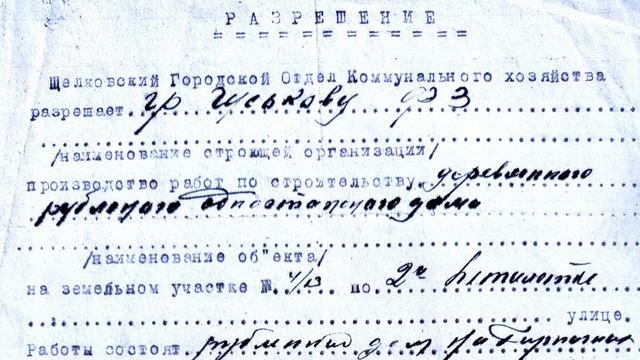 РАЗРЕШЕНИЕ
Щелковский Городской Отдел Коммунального хозяйства
разрешает гр Гуськову ФЗ
/наименование строющей организации/
производство работ по строительству деревянного
рубленого одноэтажного дома
/наименование об"екта/
на земельном участке №. 4/13 по 2й Пятилетке
улице.
Работы состоят рубленный дом